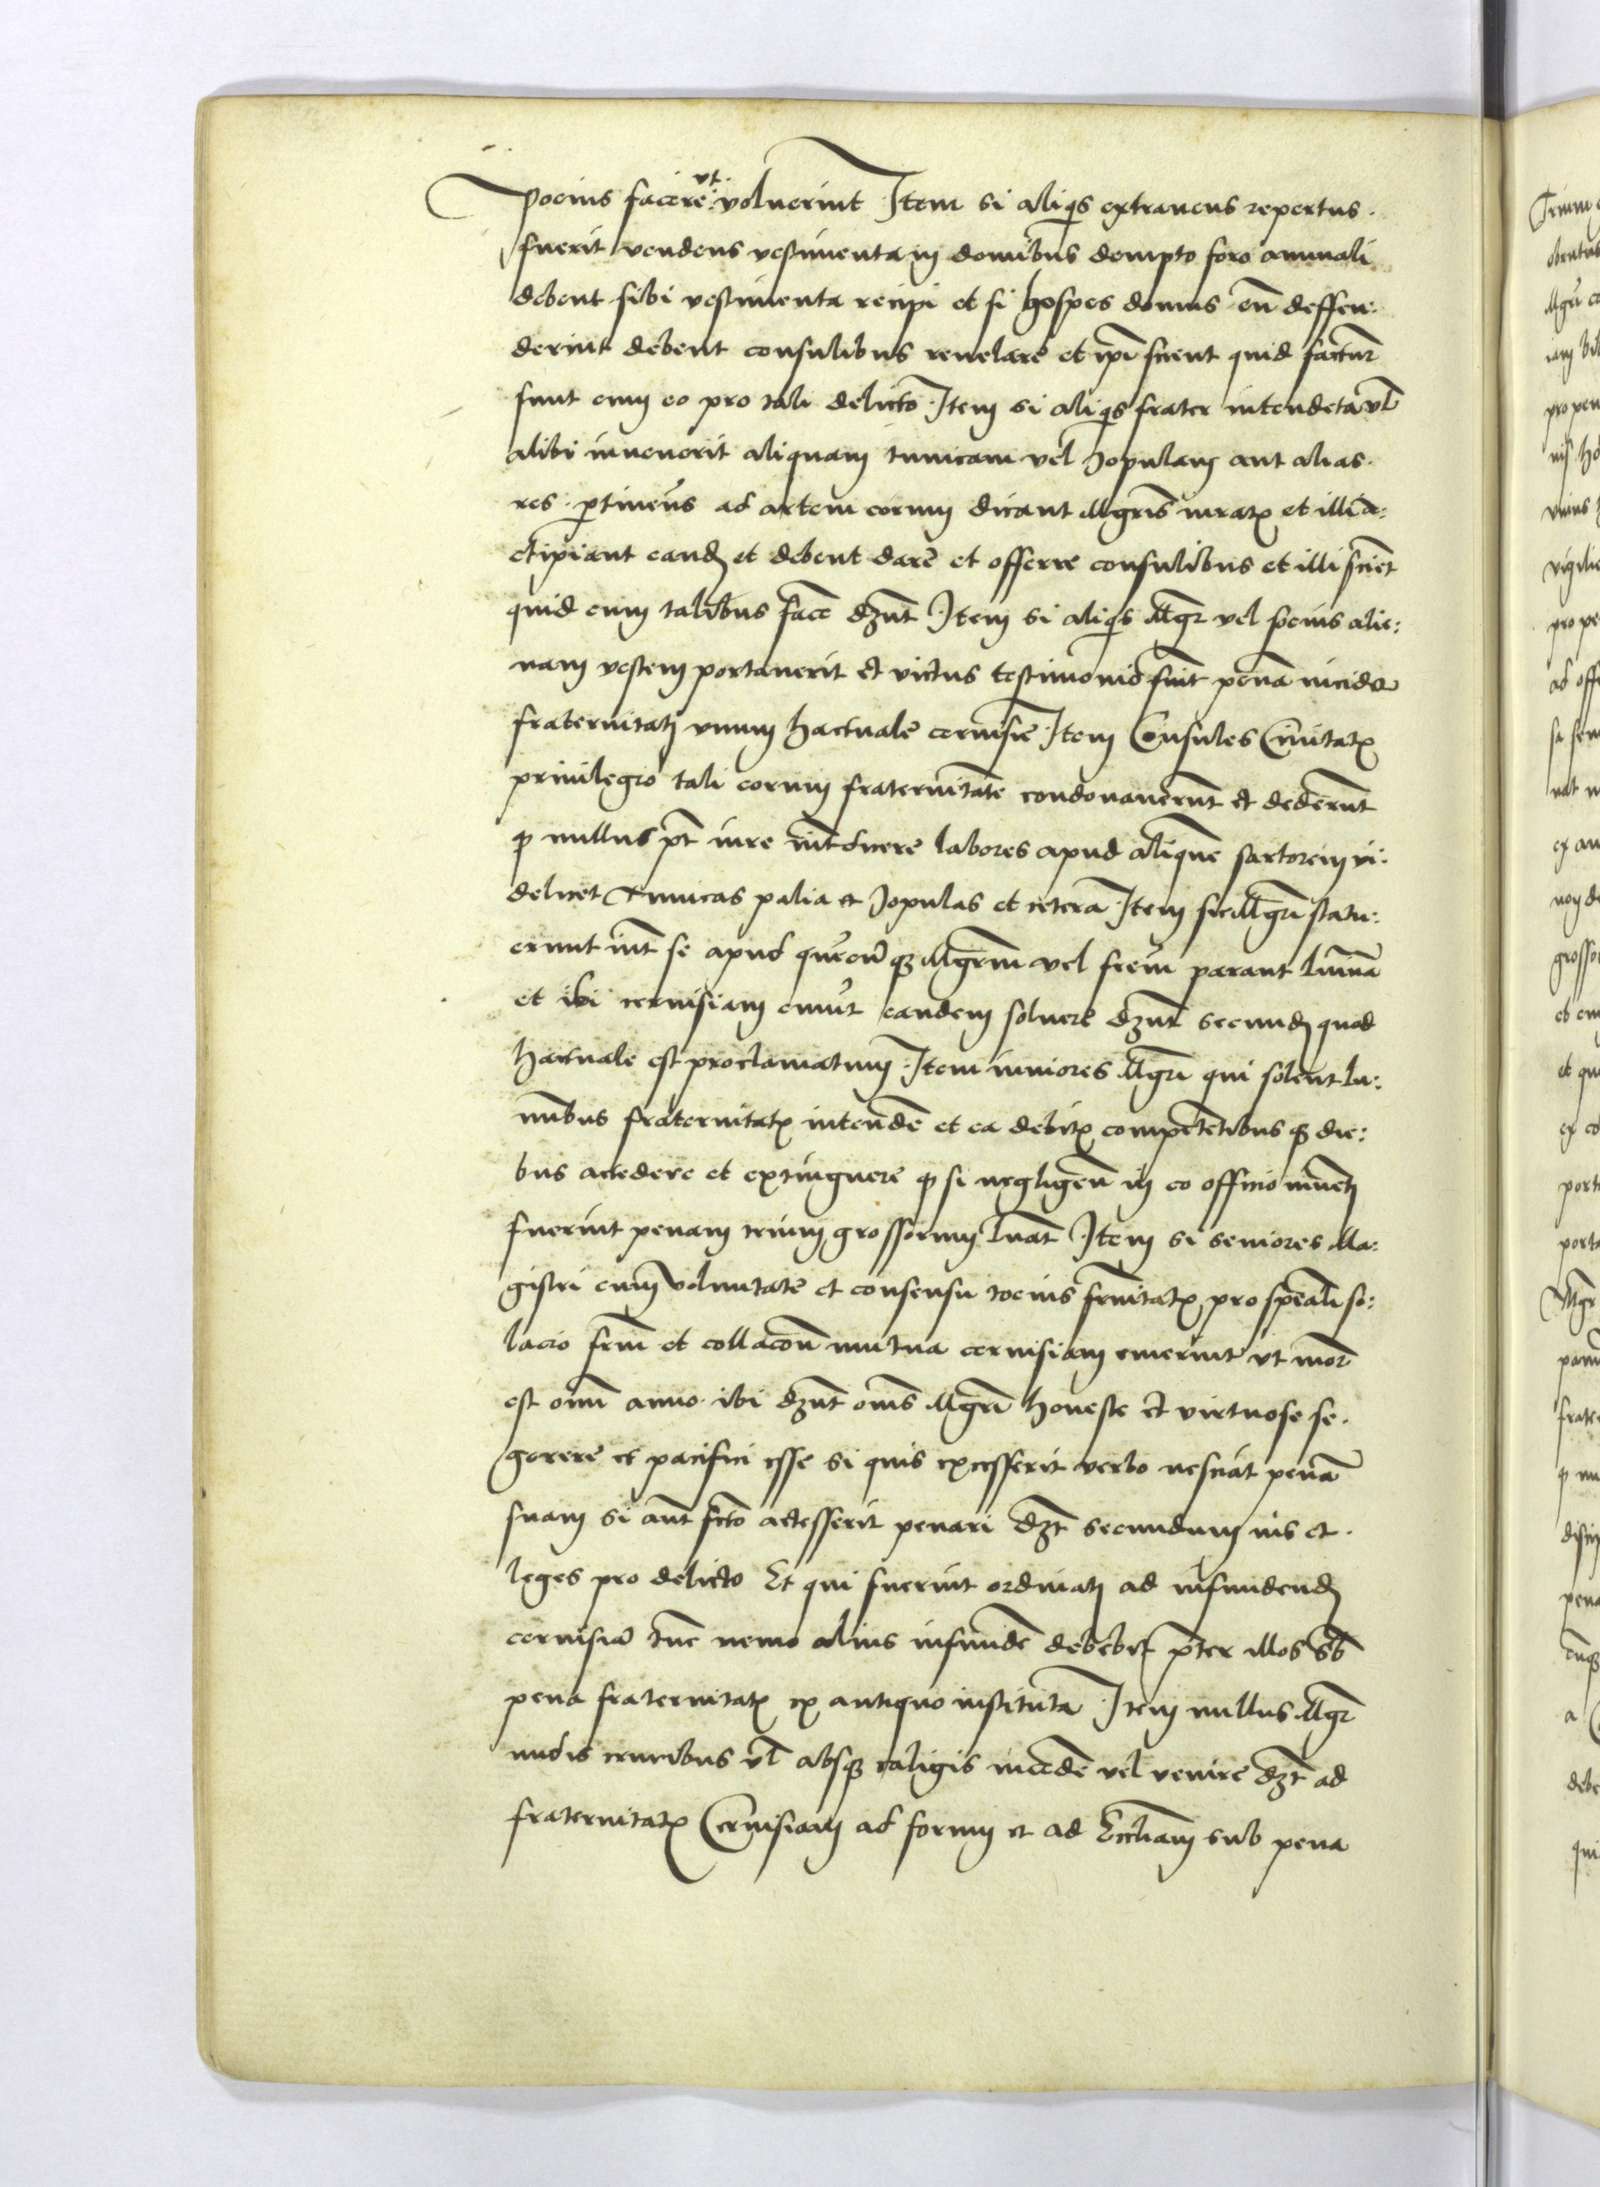 pocius facere ut voluerint Item si aliqis extraneus repertus.
fuerit vendens vestimenta in domibus dempto foro annuali
debent sibi vestimenta recipi et si hospes domus eu deffen:
derint debent consulibus reuelare et ipi scient quid factur
sunt cum eo pro tali delicto. Item si aliqis frater intendeta vl
alibi inuenerit aliquam tunicam vel Jopulam aut alias.
res. ptinens ad artem eorum dicant Mgris iuratis et illi a:
ccipiant eand et debent dare et offerre consulibus et illi scient
quid cum talibus face dznt Item si aliqis Mgr vel socius alie:
nam vestem portauerit et victus testimonio fuit pena incidet
fraternitati vnum hactuale ceruisie Item Consules Ciuitatis
priuilegio tali eorum fraternitate condonauerunt et dederunt
q nullus pt iure intducere labores apud alique sartorem vi:
delicet tunicas palia et Jopulas et cetera Item sic Mgri statu:
erunt int se apud quecu qz Mgrm vel frem parant lumina
et ibi ceruisiam emut eandem soluere dznt secund quod
hactuale est proclamatum Item iuniores Mgri qui solent lu:
minibus fraternitatis intende et ea debitis competetibus qz die:
bus accedere et extinguere q si negligen in eo officio inuenti
fuerint penam trium grossorum luat Item si seniores Ma:
gistri cum voluntate et consensu tocius frnitatis pro speali so:
lacio frm et collacon mutua ceruisiam emerint vt mor
est omi anno. ibi dznt oms Mgri honeste et virtuose se.
gerere et pacifici esse si quis excesserit verbo nesciat pena
suam si aut fcto accesserit penari dzt secundum ius et.
leges pro delicto Et qui fuerint ordinati ad infundend
ceruisia tuc nemo alius infunde debebit pter illos sb
pena fraternitatis ex antiquo instituta Item nullus Mgr
nudis cruribus vl absqz caligis incede vel venire dzt ad
fraternitatis Ceruisiam ad forum et ad Eccliam sub pena